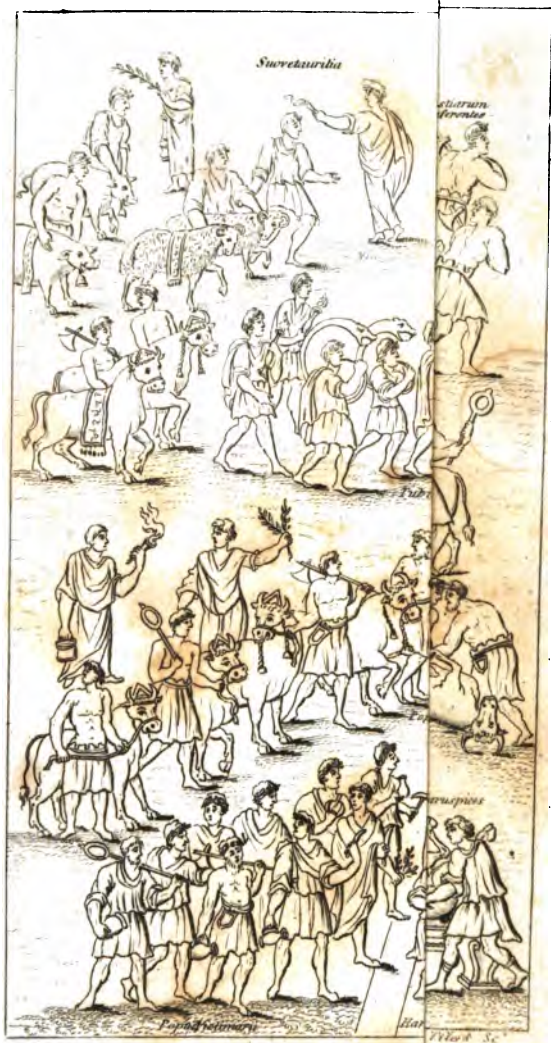 Suovetaurilia
stiarum
ferentes
Tubi
ruspices
Popae
Victimarii
Har
Sc.